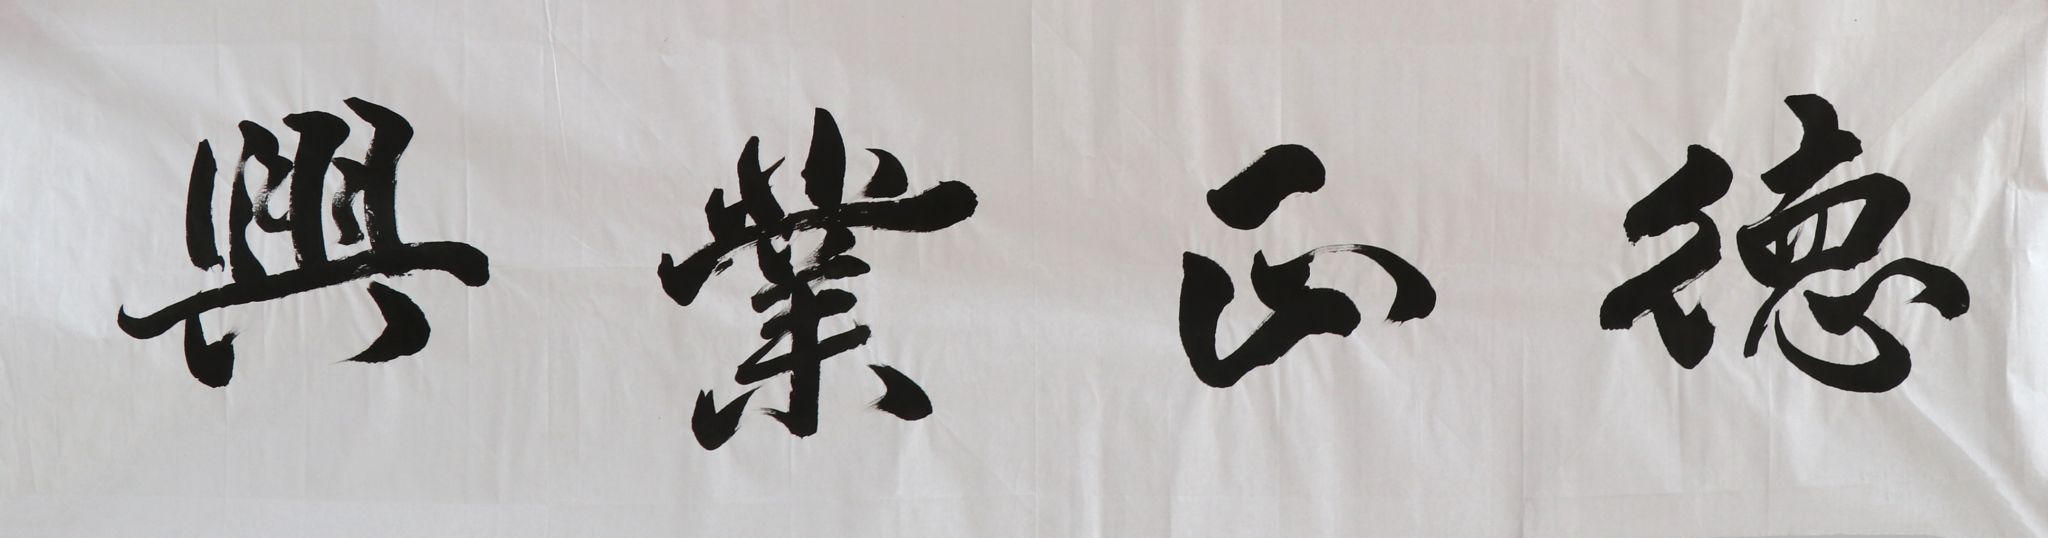 德正業興